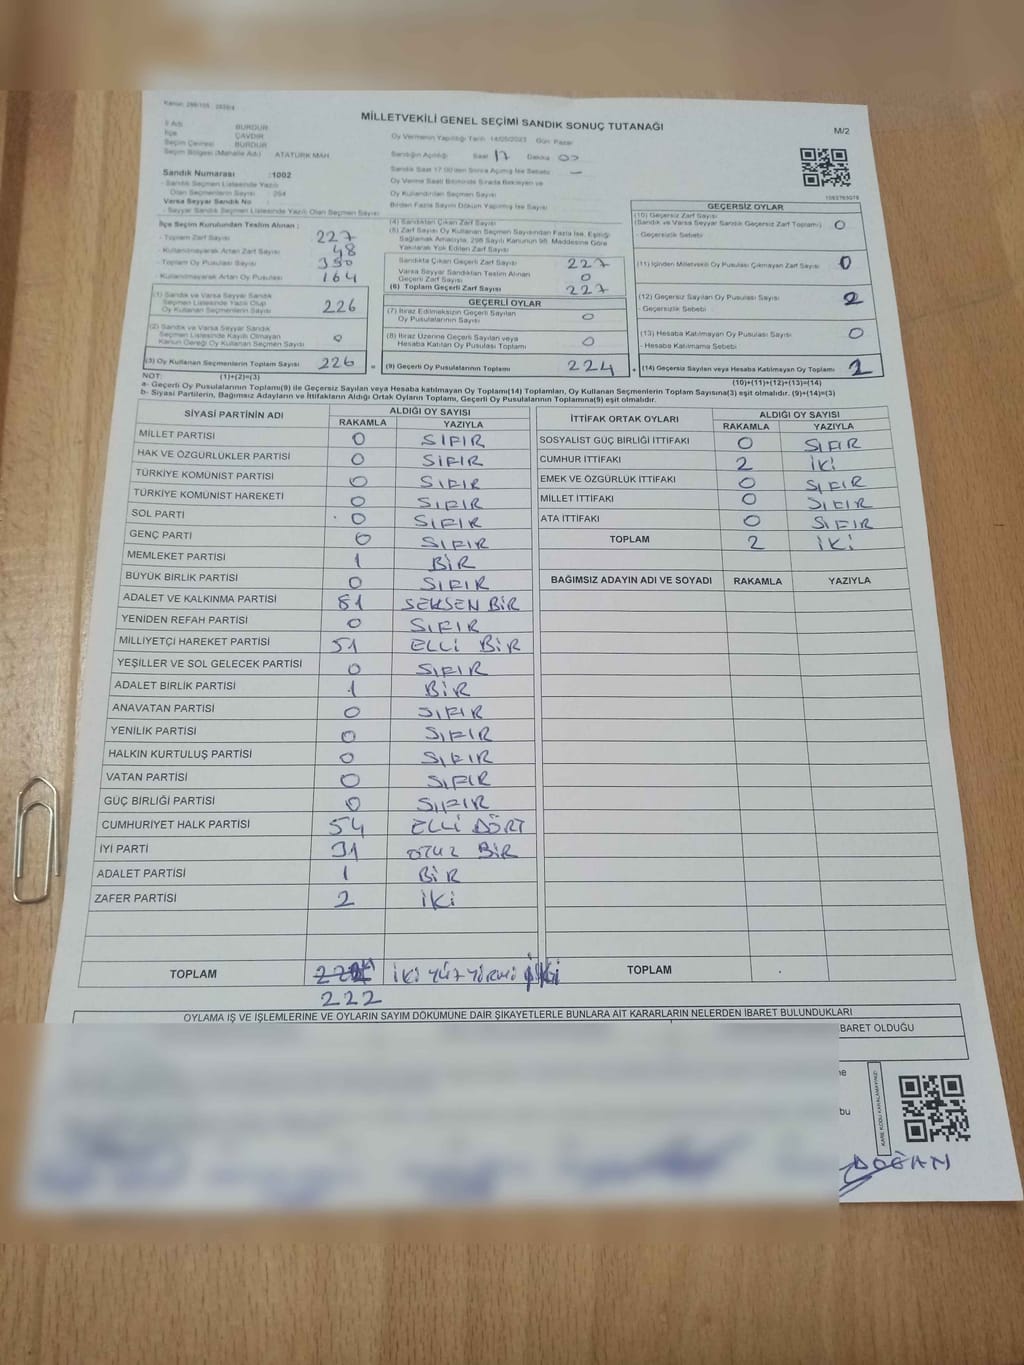 Kanun: 298/105 : 2839/4
MİLLETVEKİLİ GENEL SEÇİMİ SANDIK SONUÇ TUTANAĞI
M/2
İl Adı : BURDUR
İlçe : ÇAVDIR
Seçim Çevresi : BURDUR
Seçim Bölgesi (Mahalle Adı) : ATATÜRK MAH
Sandık Numarası : 1002
- Sandık Seçmen Listesinde Yazılı
Olan Seçmenlerin Sayısı : 264
Varsa Seyyar Sandık No :
- Seyyar Sandık Seçmen Listesinde Yazılı Olan Seçmen Sayısı:
Oy Vermenin Yapıldığı Tarih: 14/05/2023 Gün: Pazar
Sandığın Açıldığı Saat 17 Dakika 00
Sandık Saat 17:00'den Sonra Açılmış İse Sebebi —
Oy Verme Saati Bitiminde Sırada Bekleyen ve
Oy Kullandırılan Seçmen Sayısı
Birden Fazla Sayım Döküm Yapılmış İse Sayısı
İlçe Seçim Kurulundan Teslim Alınan ;
- Toplam Zarf Sayısı 227
- Kullanılmayarak Artan Zarf Sayısı 48
- Toplam Oy Pusulası Sayısı 390
- Kullanılmayarak Artan Oy Pusulası 164
(1) Sandık ve Varsa Seyyar Sandık
Seçmen Listesinde Yazılı Olup
Oy Kullanan Seçmenlerin Sayısı 226
(2) Sandık ve Varsa Seyyar Sandık
Seçmen Listesinde Kayıtlı Olmayan
Kanun Gereği Oy Kullanan Seçmen Sayısı 0
(3) Oy Kullanan Seçmenlerin Toplam Sayısı 226 =
(1)+(2)=(3)
(4) Sandıktan Çıkan Zarf Sayısı
(5) Zarf Sayısı Oy Kullanan Seçmen Sayısından Fazla İse, Eşitliği
Sağlamak Amacıyla, 298 Sayılı Kanunun 98. Maddesine Göre
Yakılarak Yok Edilen Zarf Sayısı
Sandıkta Çıkan Geçerli Zarf Sayısı 227
Varsa Seyyar Sandıktan Teslim Alınan
Geçerli Zarf Sayısı 0
(6) Toplam Geçerli Zarf Sayısı 227
GEÇERLİ OYLAR
(7) İtiraz Edilmeksizin Geçerli Sayılan
Oy Pusulalarının Sayısı 0
(8) İtiraz Üzerine Geçerli Sayılan veya
Hesaba Katılan Oy Pusulaları Toplamı 0
(9) Geçerli Oy Pusulalarının Toplamı 224 +
1082763078
GEÇERSİZ OYLAR
(10) Geçersiz Zarf Sayısı
(Sandık ve Varsa Seyyar Sandık Geçersiz Zarf Toplamı) 0
- Geçersizlik Sebebi
(11) İçinden Milletvekili Oy Pusulası Çıkmayan Zarf Sayısı 0
(12) Geçersiz Sayılan Oy Pusulası Sayısı 2
- Geçersizlik Sebebi
(13) Hesaba Katılmayan Oy Pusulası Sayısı 0
- Hesaba Katılmama Sebebi
(14) Geçersiz Sayılan veya Hesaba Katılmayan Oy Toplamı 2
(10)+(11)+(12)+(13)=(14)
NOT:
a- Geçerli Oy Pusulalarının Toplamı(9) ile Geçersiz Sayılan veya Hesaba katılmayan Oy Toplamı(14) Toplamları, Oy Kullanan Seçmenlerin Toplam Sayısına(3) eşit olmalıdır. (9)+(14)=(3)
b- Siyasi Partilerin, Bağımsız Adayların ve İttifakların Aldığı Ortak Oyların Toplamı, Geçerli Oy Pusulalarının Toplamına(9) eşit olmalıdır.
SİYASİ PARTİNİN ADI ALDIĞI OY SAYISI
RAKAMLA YAZIYLA
MİLLET PARTİSİ 0 SIFIR
HAK VE ÖZGÜRLÜKLER PARTİSİ 0 SIFIR
TÜRKİYE KOMÜNİST PARTİSİ 0 SIFIR
TÜRKİYE KOMÜNİST HAREKETİ 0 SIFIR
SOL PARTİ 0 SIFIR
GENÇ PARTİ 0 SIFIR
MEMLEKET PARTİSİ 1 BİR
BÜYÜK BİRLİK PARTİSİ 0 SIFIR
ADALET VE KALKINMA PARTİSİ 81 SEKSEN BİR
YENİDEN REFAH PARTİSİ 0 SIFIR
MİLLİYETÇİ HAREKET PARTİSİ 51 ELLİ BİR
YEŞİLLER VE SOL GELECEK PARTİSİ 0 SIFIR
ADALET BİRLİK PARTİSİ 1 BİR
ANAVATAN PARTİSİ 0 SIFIR
YENİLİK PARTİSİ 0 SIFIR
HALKIN KURTULUŞ PARTİSİ 0 SIFIR
VATAN PARTİSİ 0 SIFIR
GÜÇ BİRLİĞİ PARTİSİ 0 SIFIR
CUMHURİYET HALK PARTİSİ 54 ELLİ DÖRT
İYİ PARTİ 31 OTUZ BİR
ADALET PARTİSİ 1 BİR
ZAFER PARTİSİ 2 İKİ
TOPLAM İKİ YÜZ YİRMİ İKİ
222
İTTİFAK ORTAK OYLARI ALDIĞI OY SAYISI
RAKAMLA YAZIYLA
SOSYALİST GÜÇ BİRLİĞİ İTTİFAKI 0 SIFIR
CUMHUR İTTİFAKI 2 İKİ
EMEK VE ÖZGÜRLÜK İTTİFAKI 0 SIFIR
MİLLET İTTİFAKI 0 SIFIR
ATA İTTİFAKI 0 SIFIR
TOPLAM 2 İKİ
BAĞIMSIZ ADAYIN ADI VE SOYADI RAKAMLA YAZIYLA
TOPLAM
OYLAMA İŞ VE İŞLEMLERİNE VE OYLARIN SAYIM DÖKÜMÜNE DAİR ŞİKAYETLERLE BUNLARA AİT KARARLARIN NELERDEN İBARET BULUNDUKLARI
BARET OLDUĞU
ne
bu
KARE KODU KARALAMAYINIZ!
DOĞAN